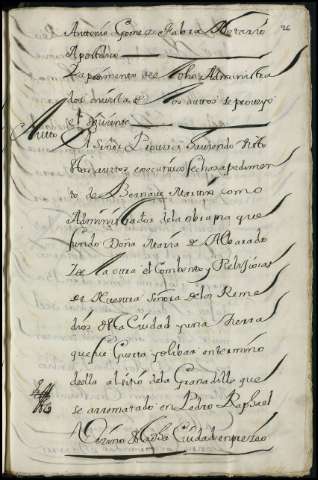 Antonio Gomez Notario 26
Apostolico
La pedimento del Administra
dor en vista de los autos se proveyo
el siguiente
Auto El Señor Provisor haviendo visto
estos autos executivos fechos a pedimen
to de Bernave Martin como
Administrador de la obra pia que
fundo Doña Maria de Albarado
I de la otra el Combento y Religiosas
de Nuestra Señora de los Reme
dios desta Ciudad y una tierra
que fue Guerta y olibar en termino
della al sitio de la Granadilla que
se a rrematado en Pedro Raphael
Vezino de dicha Ciudad en precio